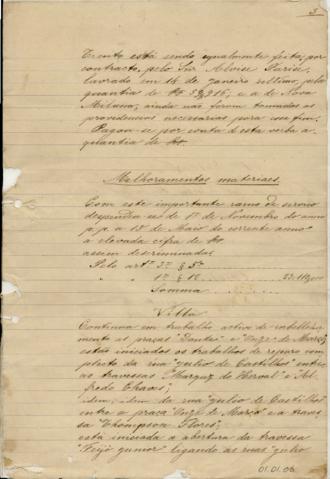 5
Trento está sendo igualmente feita, por
contracto, pelo Snr Aloise Parise,
lavrado em 18 de janeiro ultimo, pela
quantia de e a de Nova
Milano, ainda não foram tomadas as
providencias necessarias para esse fim.
Pagou-se por conta d'esta verba a
quantia de
Melhoramentos materiaes.
Com este importante ramo de serviço
despendeu-se de 1º de Novembro do anno
p. p. a 15 de Maio do corrente anno
a elevada cifra de
assim descriminadas:
Pelo artº 3º § 5º
" " 1º § 1º
Somma
Villa
Continua em trabalho activo de
as praças "Dante" e "Onze de Março";
estão iniciados os trabalhos de reparo com-
pleto da rua "Julio de Castilhos" entre
as travessas "Marquez do Herval" e "Al-
fredo Chaves";
idem, idem da rua "Julio de Castilhos"
entre a praça "Onze de Março" e a traves-
sa "Thompson Flores";
está iniciada a abertura da travessa
"Feijó Junior" ligando as ruas "Julio
01.01.06